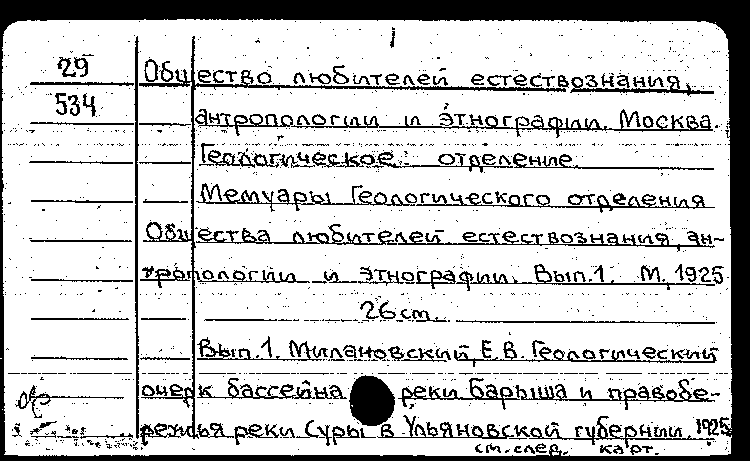 1
29 Общество любителей естествознания,
534 антропологии и этнографии. Москва.
Геологическое отделение.
Мемуары Геологического отделения
Общества любителей естествознания, ан-
тропологии и этнографии. Вып.1. М., 1925
26 см.
Вып. 1. Милановский, Е.В. Геологический
очерк бассейна реки Барыша и правобе-
режья реки Суры в Ульяновской губернии. 1925
см. след. карт.